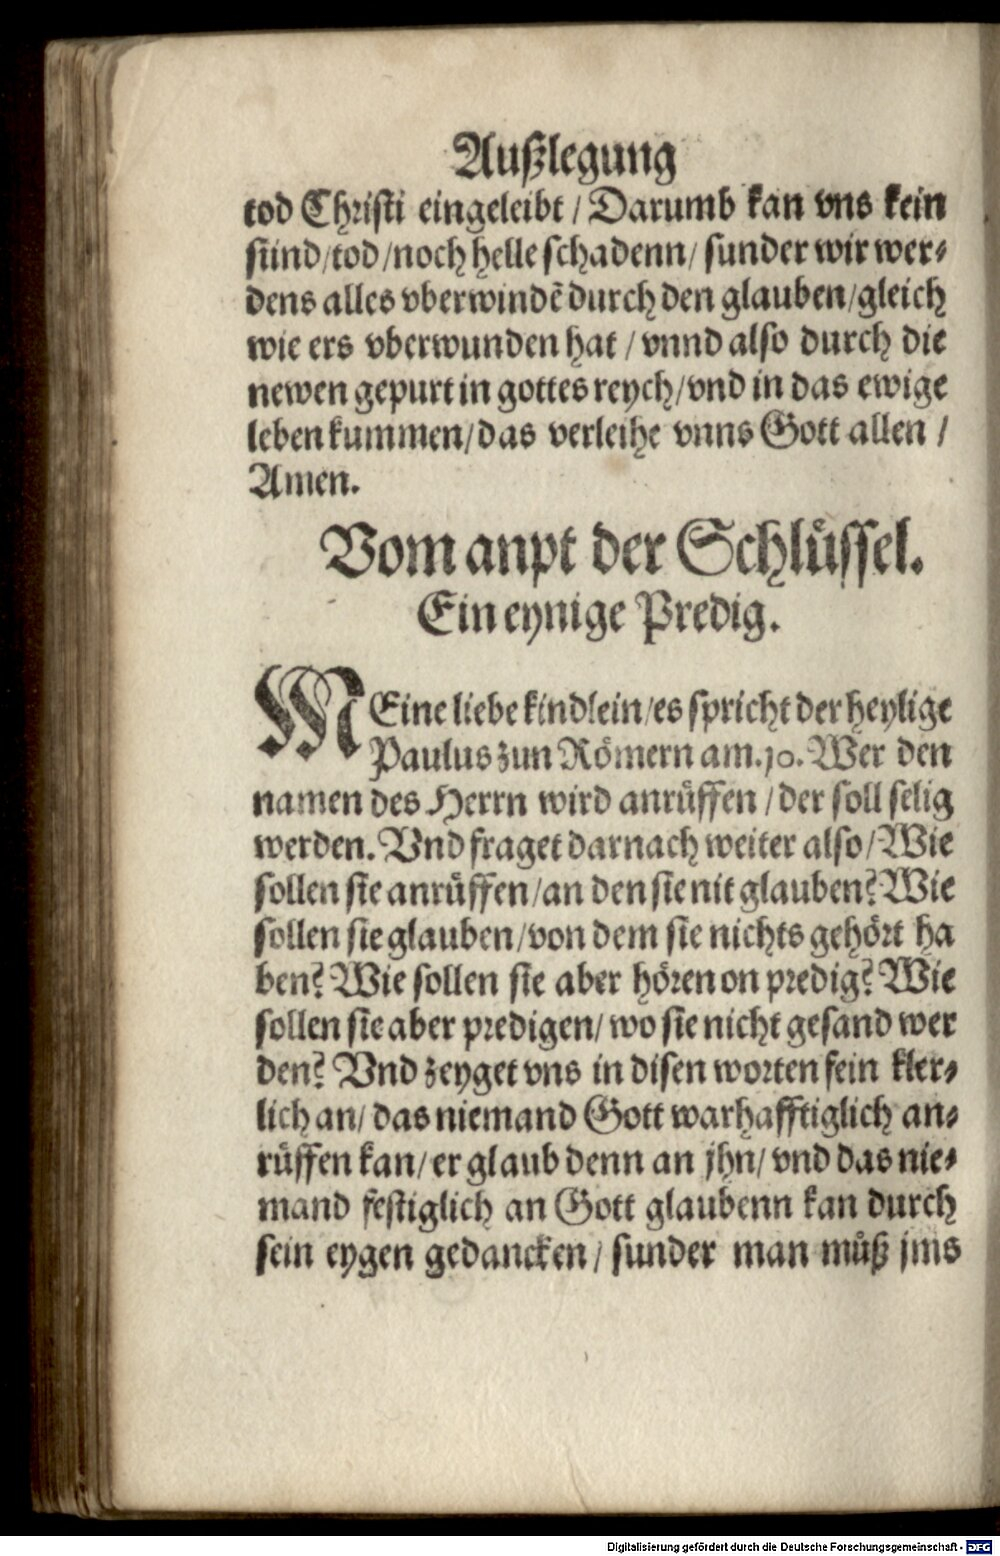 Außlegung
tod Christi eingeleibt / Darumb kan vns kein
sünd/tod/noch helle schadenn/ sunder wir wer⸗
dens alles vberwindẽ durch den glauben/gleich
wie ers vberwunden hat / vnnd also durch die
newen gepurt in gottes reych/vnd in das ewige
leben kummen/das verleihe vnns Gott allen /
Amen.
Vom anpt der Schlüssel.
Ein eynige Predig.
MEine liebe kindlein/es spricht der heylige
Paulus zun Römern am.10. Wer den
namen des Herrn wird anrüffen /der soll selig
werden. Vnd fraget darnach weiter also/Wie
sollen sie anrüffen/an den sie nit glauben? Wie
sollen sie glauben/von dem sie nichts gehört ha
ben? Wie sollen sie aber hören on predig? Wie
sollen sie aber predigen/ wo sie nicht gesand wer
den? Vnd zeyget vns in disen worten fein kler⸗
lich an/ das niemand Gott warhafftiglich an⸗
rüffen kan/ er glaub denn an jhn/ vnd das nie⸗
mand festiglich an Gott glaubenn kan durch
sein eygen gedancken / sunder man müß jms
Digitalisierung gefördert durch die Deutsche Forschungsgemeinschaft - DFG